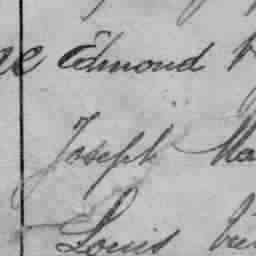 Edmond
Joseph Ma
Louis